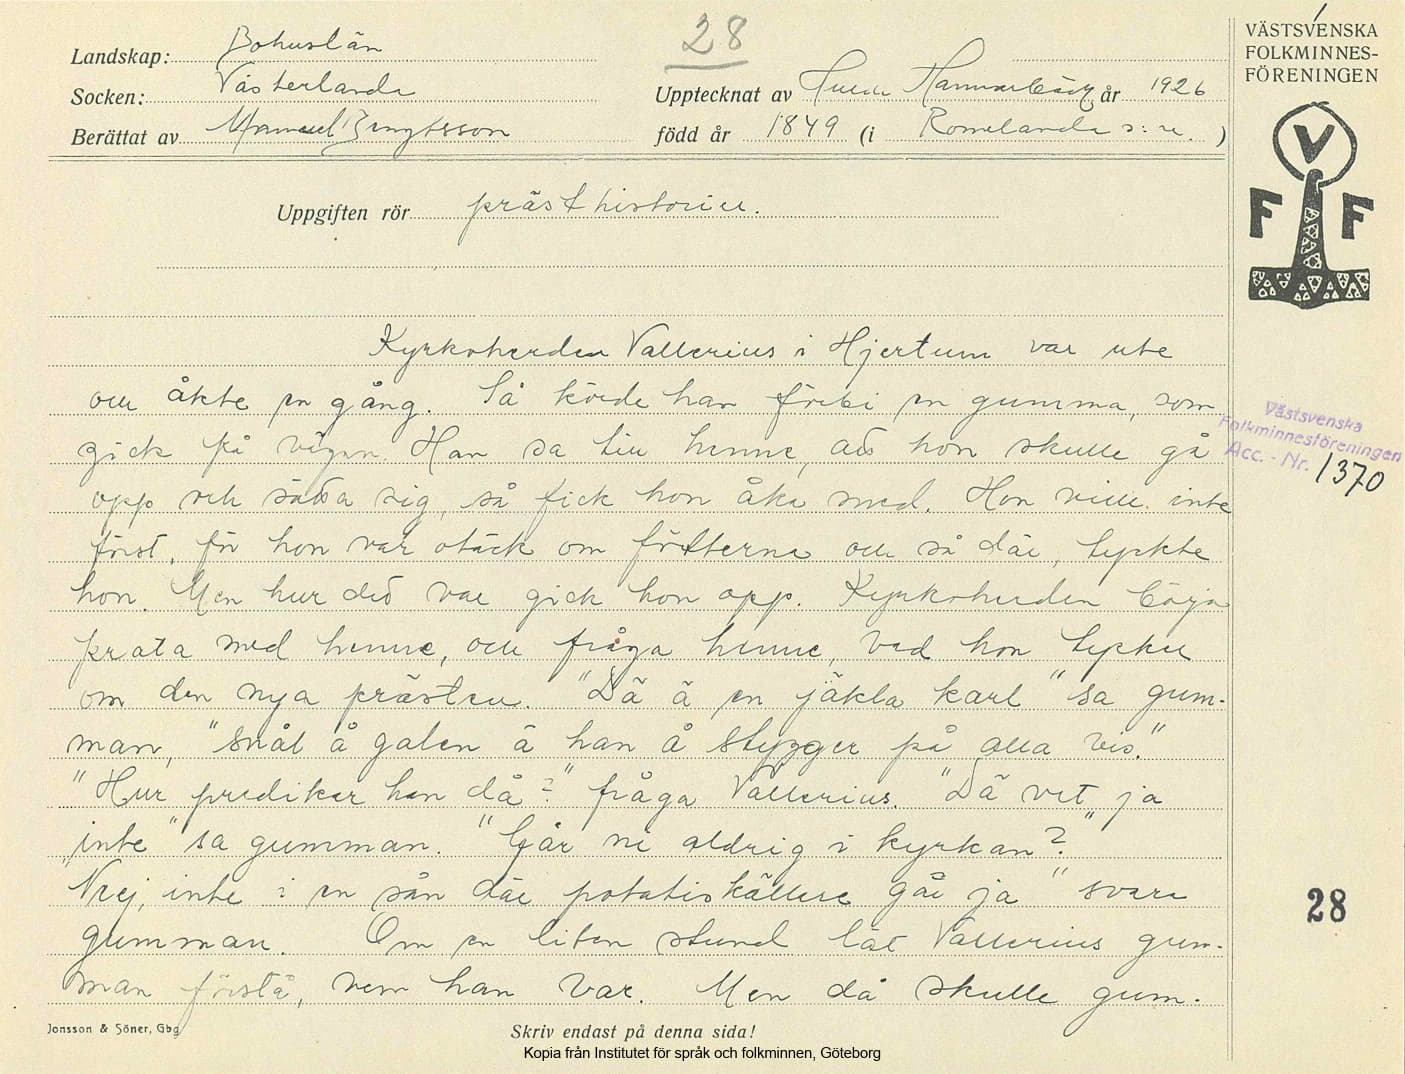 28
VÄSTSVENSKA
FOLKMINNES-
FÖRENINGEN
Landskap: Bohuslän
Socken: Västerlanda
Upptecknat av Hulda Hammarbäck år 1926
Berättat av Manuel Bengtsson
född år 1849 (i Romelanda s:n. )
V
F F
Uppgiften rör prästhistorier.
Kyrkoherden Vallerius i Hjertum var ute
och åkte en gång. Så körde han förbi en gumma, som
gick på vägen. Han sa till henne, att hon skulle gå
opp och sätta sig, så fick hon åka med. Hon ville inte
först, för hon var otäck om fötterna och så där, tyckte
hon. Men hur det var gick hon opp. Kyrkoherden börja
prata med henne, och fråga henne, vad hon tyckte
om den nya prästen. "Dä ä en jäkla karl" sa gum-
man, "snål å galen ä han å stygger på alla vis."
"Hur predikar han då?" fråga Vallerius. "Dä vet ja
inte" sa gumman. "Går ni aldrig i kyrkan?"
"Nej, inte i en sån där potatiskällare går ja" svara
gumman. Om en liten stund lät Vallerius gum-
man förstå, vem han var. Men då skulle gum-
Västsvenska
Folkminnesföreningen
Acc. - Nr. 1370
28
Jonsson & Söner, Gbg
Skriv endast på denna sida!
Kopia från Institutet för språk och folkminnen, Göteborg